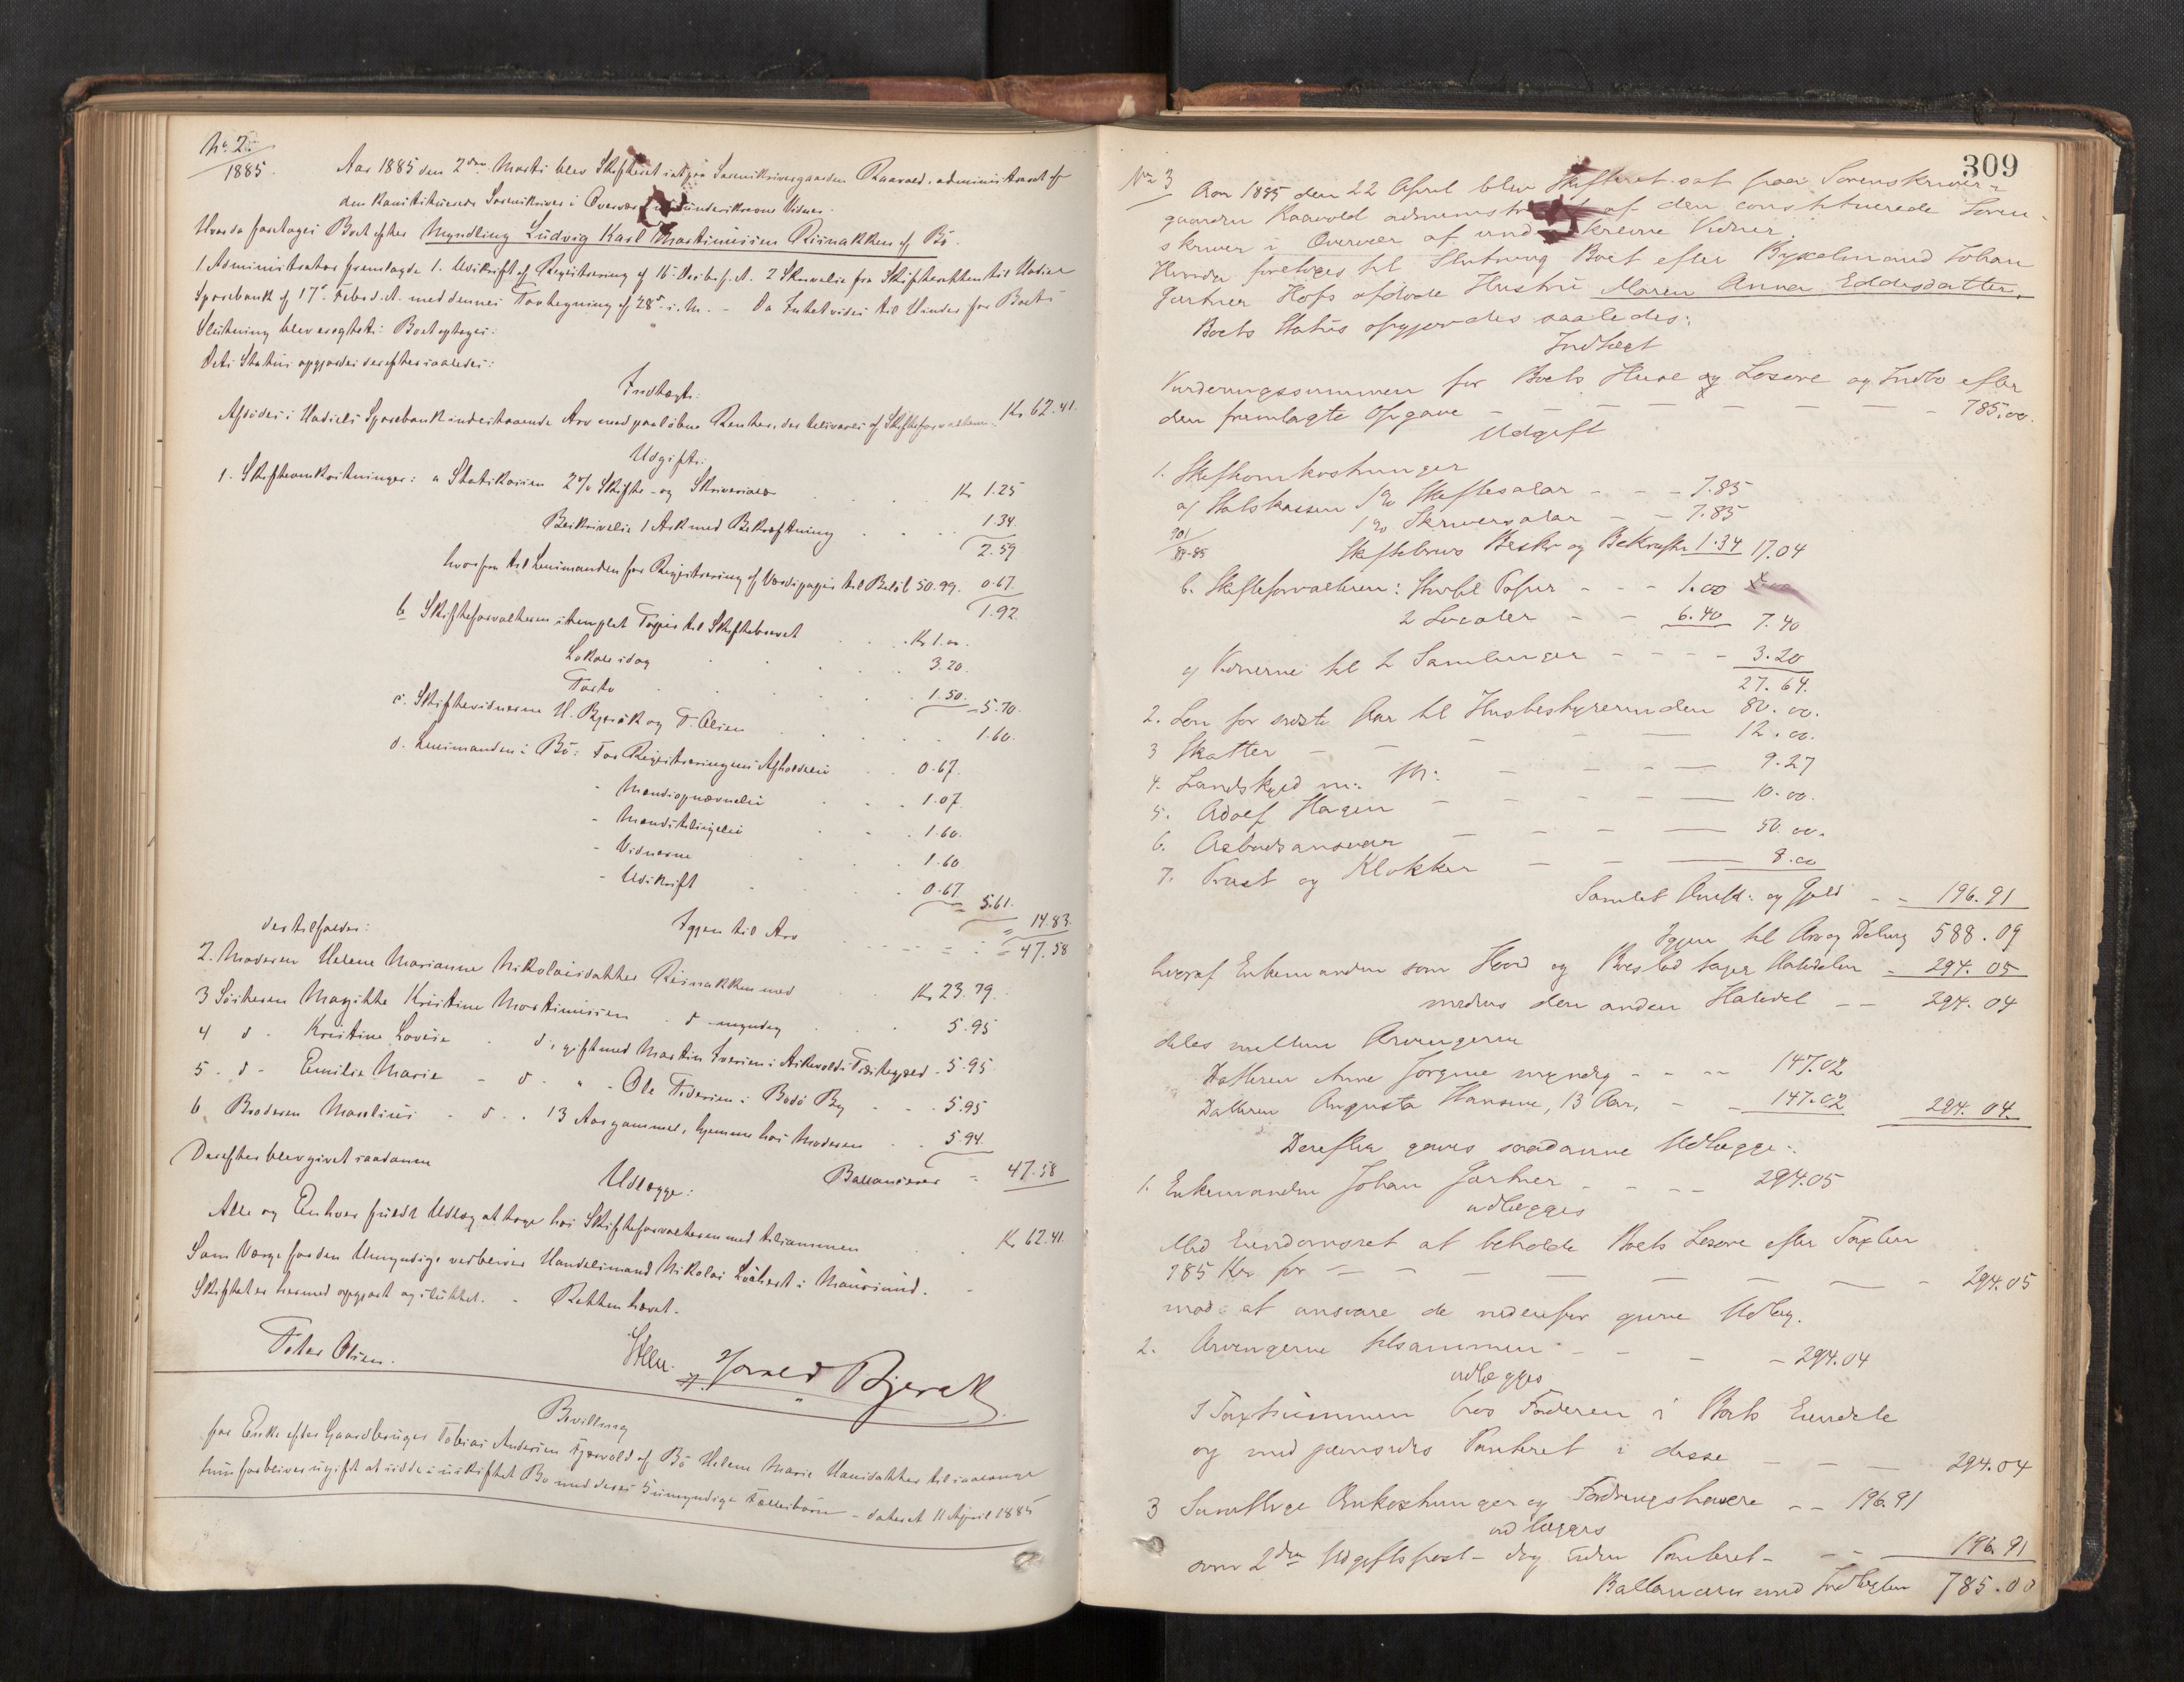 No. 2.
1885.
Aar 1885 den 2den Marts blev Skifteret sat paa Sorenskrivergaarden Raavold, administreret af
den konstituerede Sorenskriver i Overvær af underskrevne Vidner.
Hvorda foretoges Boet efter Myndling Ludvig Karl Martinussen Risnakken af Bø.
Administrator fremlagde 1. Udskrift af Registrering af 16 Decbr. f. A. 2 Skrivelse fra Skifteretten til Hadsel
Sparebank af 17de Febr. d. A. med dennes Paategning af 28de s. M. - Da Intet vides til Hinder for Boets
Slutning blev eragtet: Boet optages:
Dets Status opgjordes derefter saaledes:
Indtægt.
Afdødes i Hadsels Sparebank indestaaende Arv med paaløbne Renter, der tilsvares af Skifteforvalteren Kr 62.41.
Udgift:
1. Skifteomkostninger: a Statskassen 2% Skifte- og Skriversalær Kr 1.25
Beskrivelse 1 Ark med Bekræftning 1.34.
2.59
hvorfra til Lensmanden for Registrering af Værdipapir til Beløb 50.99. 0.67
1.92
b Skifteforvalteren stemplet Papir til Skiftebrevet Kr 1.00.
Lokale idag 3.20.
Porto 1.50. 5.70.
c. Skiftevidnerne H. Bjervik og P. Olsen 1.60.
d. Lensmanden i Bø: For Registreringens Afholdelse 0.67.
- Mændsopnævnelse 1.07.
- Mændstilsigelse 1.60.
- Vidnerne 1.60
- Udskrift 0.67 5.61.
= 14.83.
Igjen til Arv = 47.58
der tilfalder:
2. Moderen Helene Marianne Nikolaisdatter Risnakken med Kr 23.79.
3 Søsteren Magitte Kristine Martinussen d. myndig 5.95
4 d - Kristine Lovise d., gift med Martin Iversen i Askevold i Frækegjæld - 5.95.
5 - d - Emilie Marie - d - " - Ole Pedersen i Bodø By 5.95
6. Broderen Maslius - d - 13 Aar gammel, hjemme hos Moderen 5.94.
Ballancerer = 47.58
Derefter blev givet saadanne
Udlægge:
Alle og Enhver fuldt Udlæg at tage hos Skifteforvalteren med tilsammen Kr 62.41.
Som Værge for den Umyndige vedblev Handelsmand Nikolai Lockert i Maursund.
Skiftet er hermed opgjort og sluttet. - Retten hævet.
Peter Olsen. Harald Bjervik
Bevilling
for Enke efter Gaardbruger Tobias Andersen Fjærvold af Bø Helene Marie Hansdatter til saalænge
hun forbliver ugift at sidde i uskiftet Bo med deres umyndige Fællesbørn - dateret 11 April 1885
309
No 3
Aar 1885 den 22 April blev Skifteret sat paa Sorenskriver-
gaarden Raavold administreret af den constituerede Soren-
skriver i Overvær af underskrevne Vidner.
Hvorda foretoges til Slutning Boet efter Bygselmand Johan
Gartner Hofs afdøde Hustru Maren Anna Eddisdatter.
Boets Status opgjordes saaledes:
Indtægt
Vurderingssummen for Boets Huse og Løsøre og Indbo efter
den fremlagte Opgave - - - 785.00.
Udgift
1. Skifteomkostninger
a) Statskassen 1% Skiftesalær - - - 7.85
1% Skriversalær - - 7.85
Skiftebrevs Beskr og Bekræftn 1.34 17.04
b. Skifteforvalteren: Stemplet Papir - - - 1.00
2 Localer - - 6.40 7.40
c) Vidnerne til 2 Samlinger - - - - 3.20
27.64.
2. Løn for sidste Aar til Husbestyrerinden 80.00.
3 Skatter - - - 12.00.
4. Landskyld m. M: - - - 9.27
5. Adolf Hagen - - - 10.00.
6. Aabodsansvar - - - 50.00.
7. Præst og Klokker - - - 8.00
Samlet Omk: og Gjeld - - 196.91
Igjen til Arv og Deling 588.09
hvoraf Enkemanden som Hoved og Boeslod tager Halvdelen - 294.05
medens den anden Halvdel - - 294.04
deles mellem Arvingerne
Datteren Anne Jørgine myndig - - - 147.02
Datteren Augusta Hansine, 13 Aar, - - 147.02 294.04.
Derefter gaves saadanne Udlægge:
1. Enkemanden Johan Gartner - - - 294.05
udlægges
Med Eiendomsret at beholde Boets Løsøre efter Taxten
785 Kr for - - - 294.05
mod at ansvare de nedenfor givne Udlæg.
2. Arvingerne tilsammen - - - 294.04
udlægges
I Taxtsummen hos Faderen i Boets Eiendele
og med gjensidig Panteret i disse - - - 294.04
3 Samtlige Omkostninger og Fordringshavere - - 196.91
udlægges
som 2den Udgiftspost - dog uden Panteret - - - 196.91
Ballancerer med Indtægten 785.00